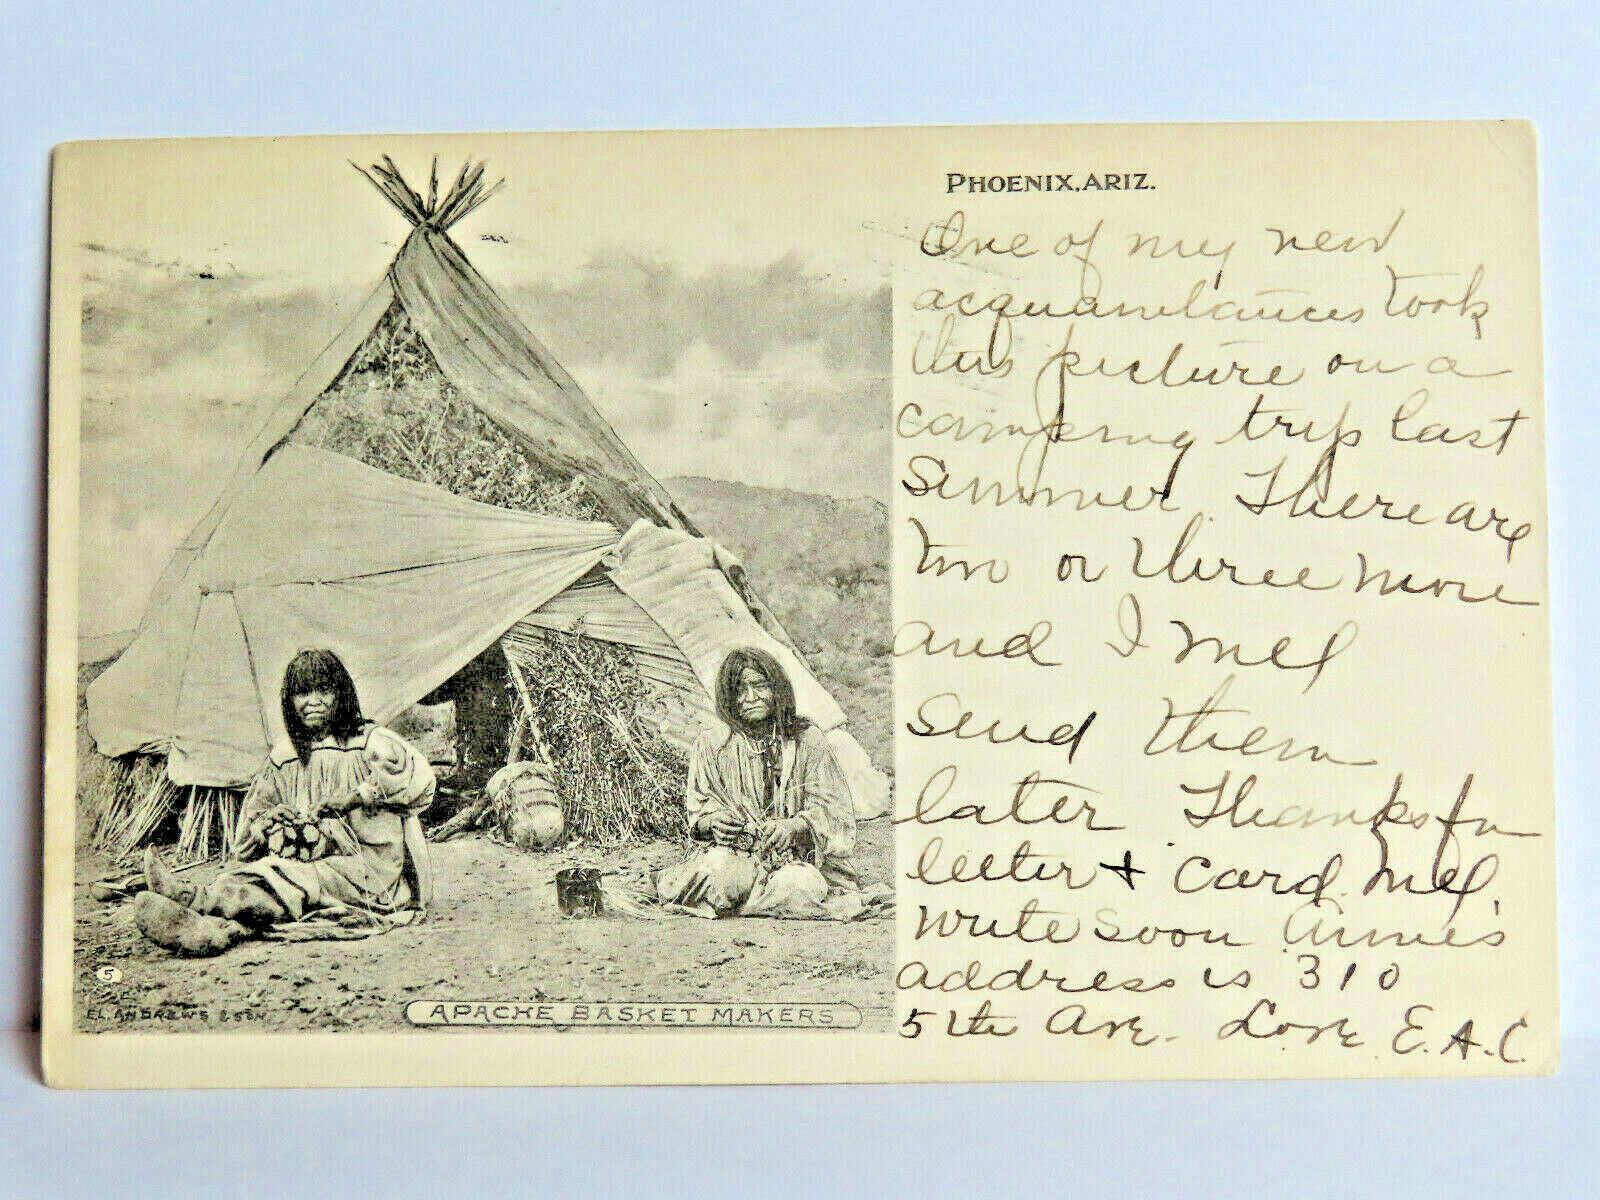 PHOENIX, ARIZ.
One of my new
acquaintances took
this picture on a
camping trip last
Summer. There are
two or three more
and I will
send them
later. Thanks for
letter & card.
write soon Annie's
address is 310
5th Ave. Love E.A.C.
5
E.L. ANDREWS & SON
APACHE BASKET MAKERS